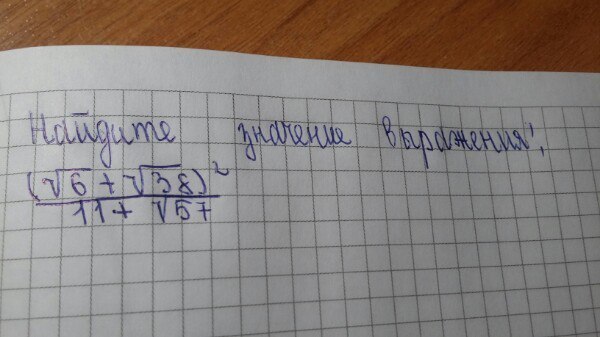 Найдите значение выражения:
(√6 + √38)²
11 + √57